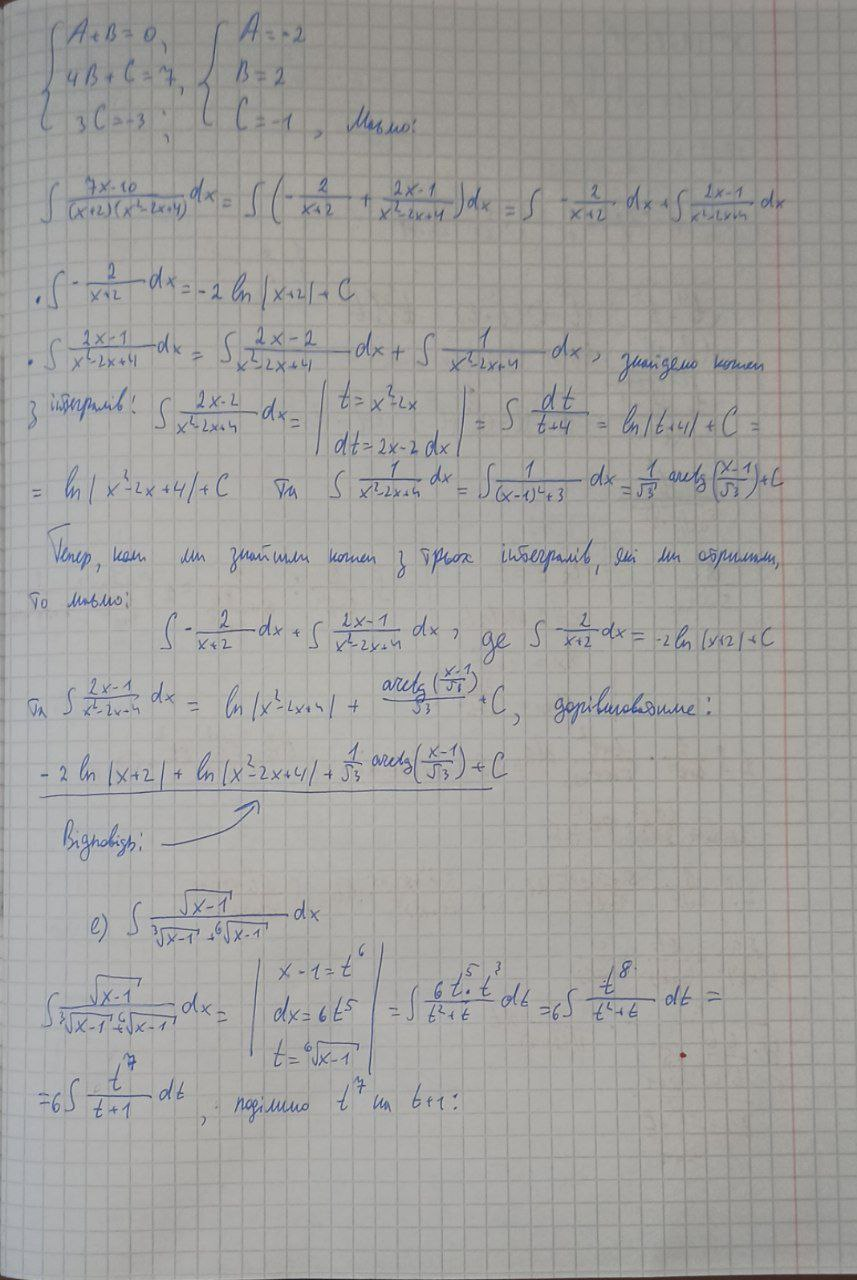 { A+B=0, { A=-2
4B+C=7, B=2
3C=-3; C=-1, Маємо:
∫ (7x-10)/((x+2)(x²-2x+4)) dx = ∫ (- 2/(x+2) + (2x-1)/(x²-2x+4)) dx = ∫ - 2/(x+2) dx + ∫ (2x-1)/(x²-2x+4) dx
• ∫ - 2/(x+2) dx = -2 ln |x+2| + C
• ∫ (2x-1)/(x²-2x+4) dx = ∫ (2x-2)/(x²-2x+4) dx + ∫ 1/(x²-2x+4) dx, знайдемо кожен
з інтегралів: ∫ (2x-2)/(x²-2x+4) dx = | t=x²-2x dt=2x-2 dx | = ∫ dt/(t+4) = ln|t+4| + C =
= ln| x²-2x+4| + C та ∫ 1/(x²-2x+4) dx = ∫ 1/((x-1)²+3) dx = 1/√3 arctg ((x-1)/√3) + C
Тепер, коли ми знайшли кожен з трьох інтегралів, які ми отримали,
то маємо:
∫ - 2/(x+2) dx + ∫ (2x-1)/(x²-2x+4) dx, де ∫ - 2/(x+2) dx = -2 ln |x+2| + C
та ∫ (2x-1)/(x²-2x+4) dx = ln |x²-2x+4| + arctg ((x-1)/√3)/√3 + C, дорівнюватиме:
-2 ln |x+2| + ln |x²-2x+4| + 1/√3 arctg ((x-1)/√3) + C
Відповідь:
е) ∫ √(x-1)/(∛(x-1) + ⁶√(x-1)) dx
∫ √(x-1)/(∛(x-1) + ⁶√(x-1)) dx = | x-1=t⁶ dx=6t⁵ t=⁶√(x-1) | = ∫ (6t⁵·t³)/(t²+t) dt = 6∫ t⁸/(t²+t) dt =
= 6∫ t⁷/(t+1) dt, поділимо t⁷ на t+1: